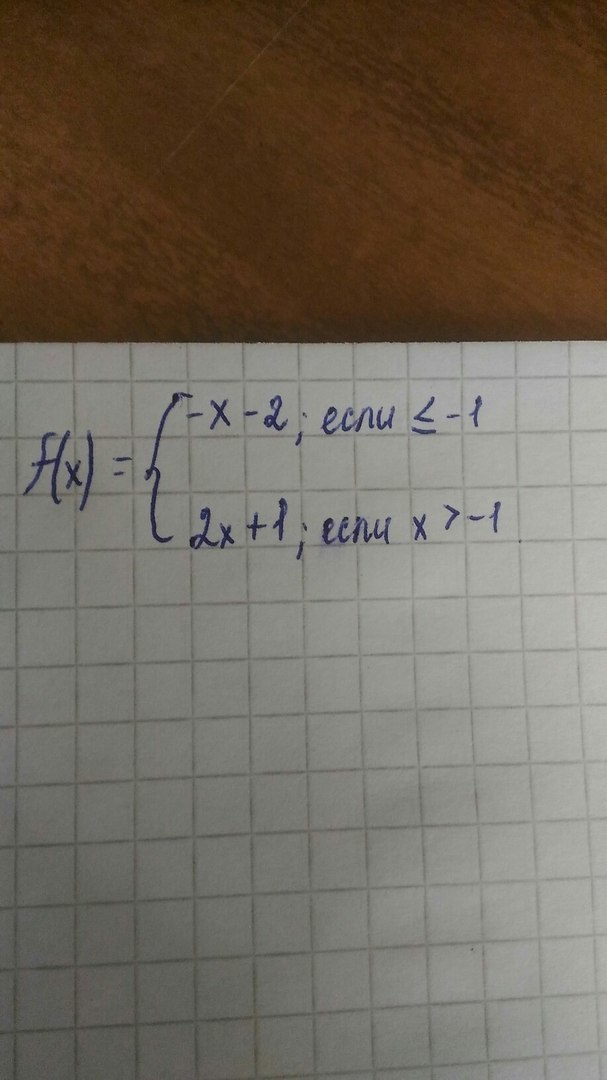 f(x) = { -x - 2; если ≤ -1
2x + 1; если x > -1